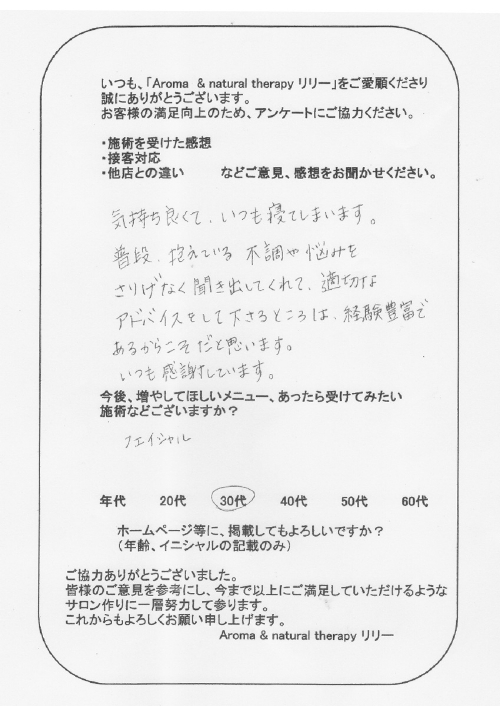 いつも、「Aroma & natural therapy リリー」をご愛顧くださり
誠にありがとうございます。
お客様の満足向上のため、アンケートにご協力ください。
・施術を受けた感想
・接客対応
・他店との違い などご意見、感想をお聞かせください。
気持ち良くて、いつも寝てしまいます。
普段、抱えている 不調や悩みを
さりげなく聞き出してくれて、適切な
アドバイスをして下さるところは、経験豊富で
あるからこそだと思います。
いつも感謝しています。
今後、増やしてほしいメニュー、あったら受けてみたい
施術などございますか？
フェイシャル
年代 20代 30代 40代 50代 60代
ホームページ等に、掲載してもよろしいですか？
（年齢、イニシャルの記載のみ）
ご協力ありがとうございました。
皆様のご意見を参考にし、今まで以上にご満足していただけるような
サロン作りに一層努力して参ります。
これからもよろしくお願い申し上げます。
Aroma & natural therapy リリー